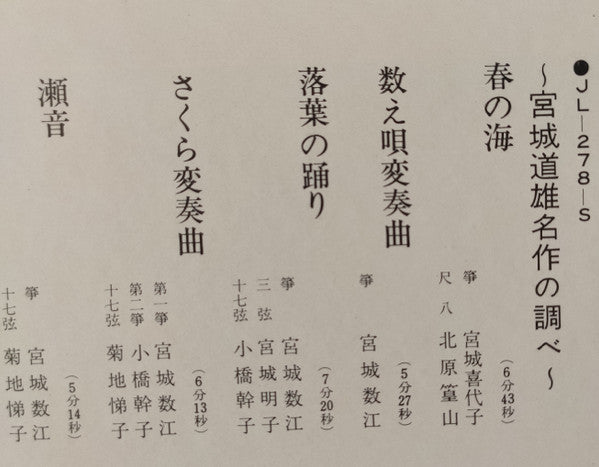 ●JL—278—S
～宮城道雄名作の調べ～
春の海
(6分43秒)
箏 宮城喜代子
尺八 北原篁山
数え唄変奏曲
(5分27秒)
箏 宮城数江
落葉の踊り
(7分20秒)
箏 宮城数江
三弦 宮城明子
十七弦 小橋幹子
さくら変奏曲
(6分13秒)
第一箏 宮城数江
第二箏 小橋幹子
十七弦 菊地悌子
瀬音
(5分14秒)
箏 宮城数江
十七弦 菊地悌子